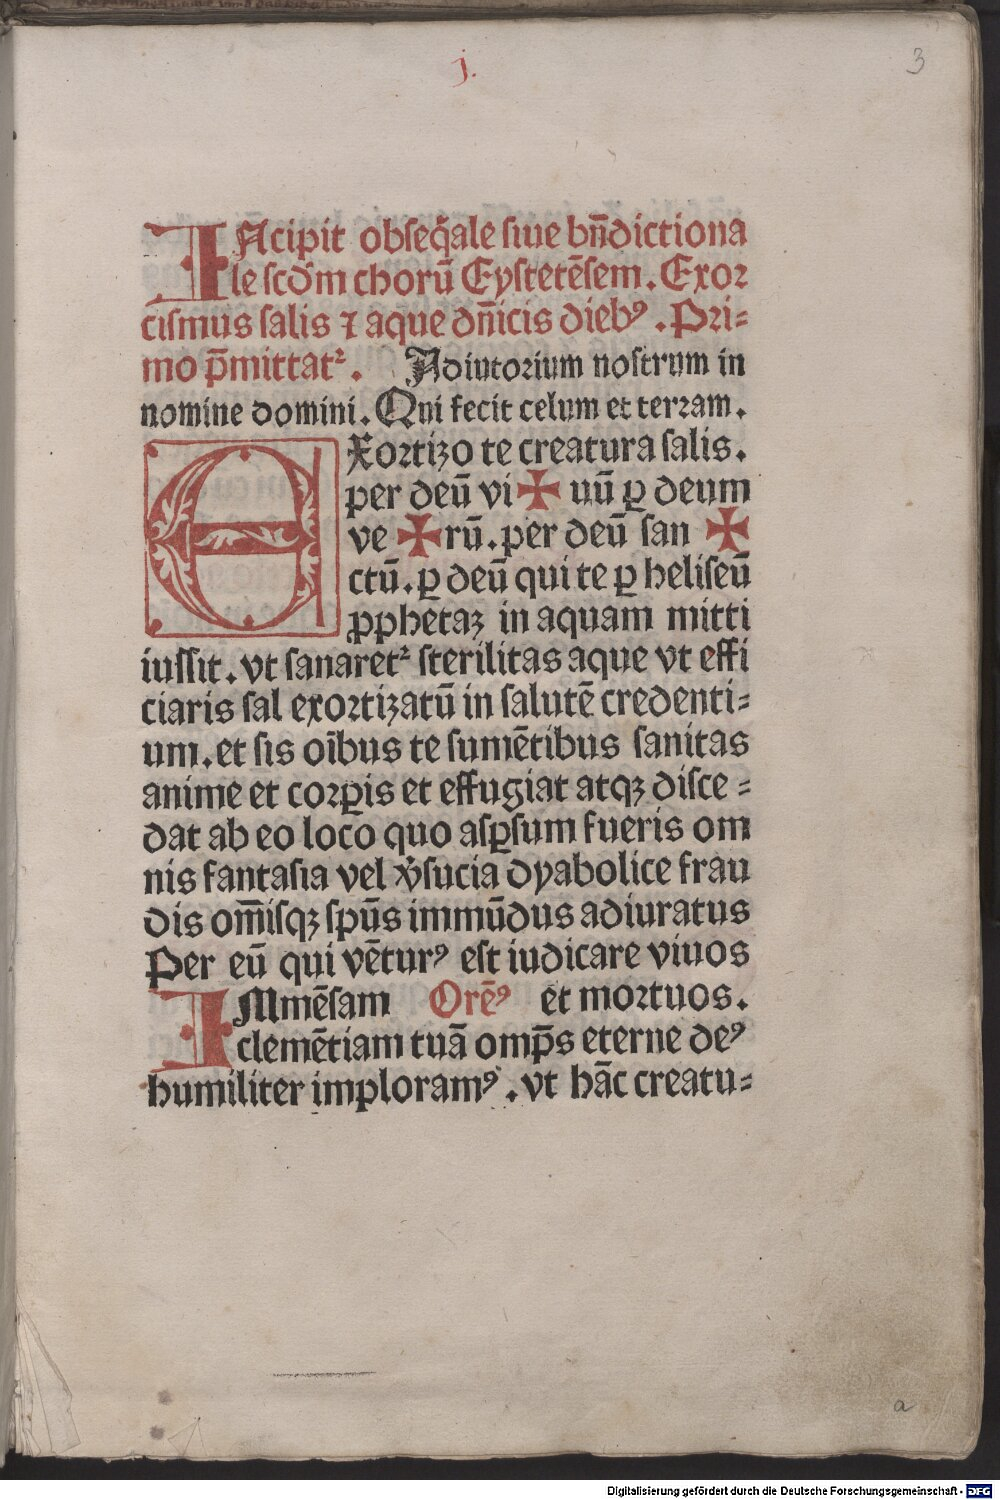 j.
3
INcipit obseq̄ale siue bn̄dictiona
le scd̄m chorū Eystetēsem. Exor
cismus salis ⁊ aque dn̄icis dieb⁹. Pri=
mo p̄mittatᷣ. Adiutorium nostrum in
nomine domini. Qui fecit celum et terram.
EXortizo te creatura salis.
per deū vi ✠ uū ꝑ deum
ve ✠ rū. per deū san ✠
ctū. ꝑ deū qui te ꝑ heliseū
ꝓphetaꝫ in aquam mitti
iussit. vt sanaretᷣ sterilitas aque vt effi
ciaris sal exortizatū in salutē credenti=
um. et sis oībus te sumētibus sanitas
anime et corꝑis et effugiat atqꝫ disce=
dat ab eo loco quo asꝑsum fueris om
nis fantasia vel v̓sucia dyabolice frau
dis om̄isqꝫ spūs immūdus adiuratus
Per eū qui vētur⁹ est iudicare viuos
IMmēsam Orē⁹ et mortuos.
clemētiam tuā omp̄s eterne de⁹
humiliter imploram⁹. vt hāc creatu=
a
Digitalisierung gefördert durch die Deutsche Forschungsgemeinschaft - DFG